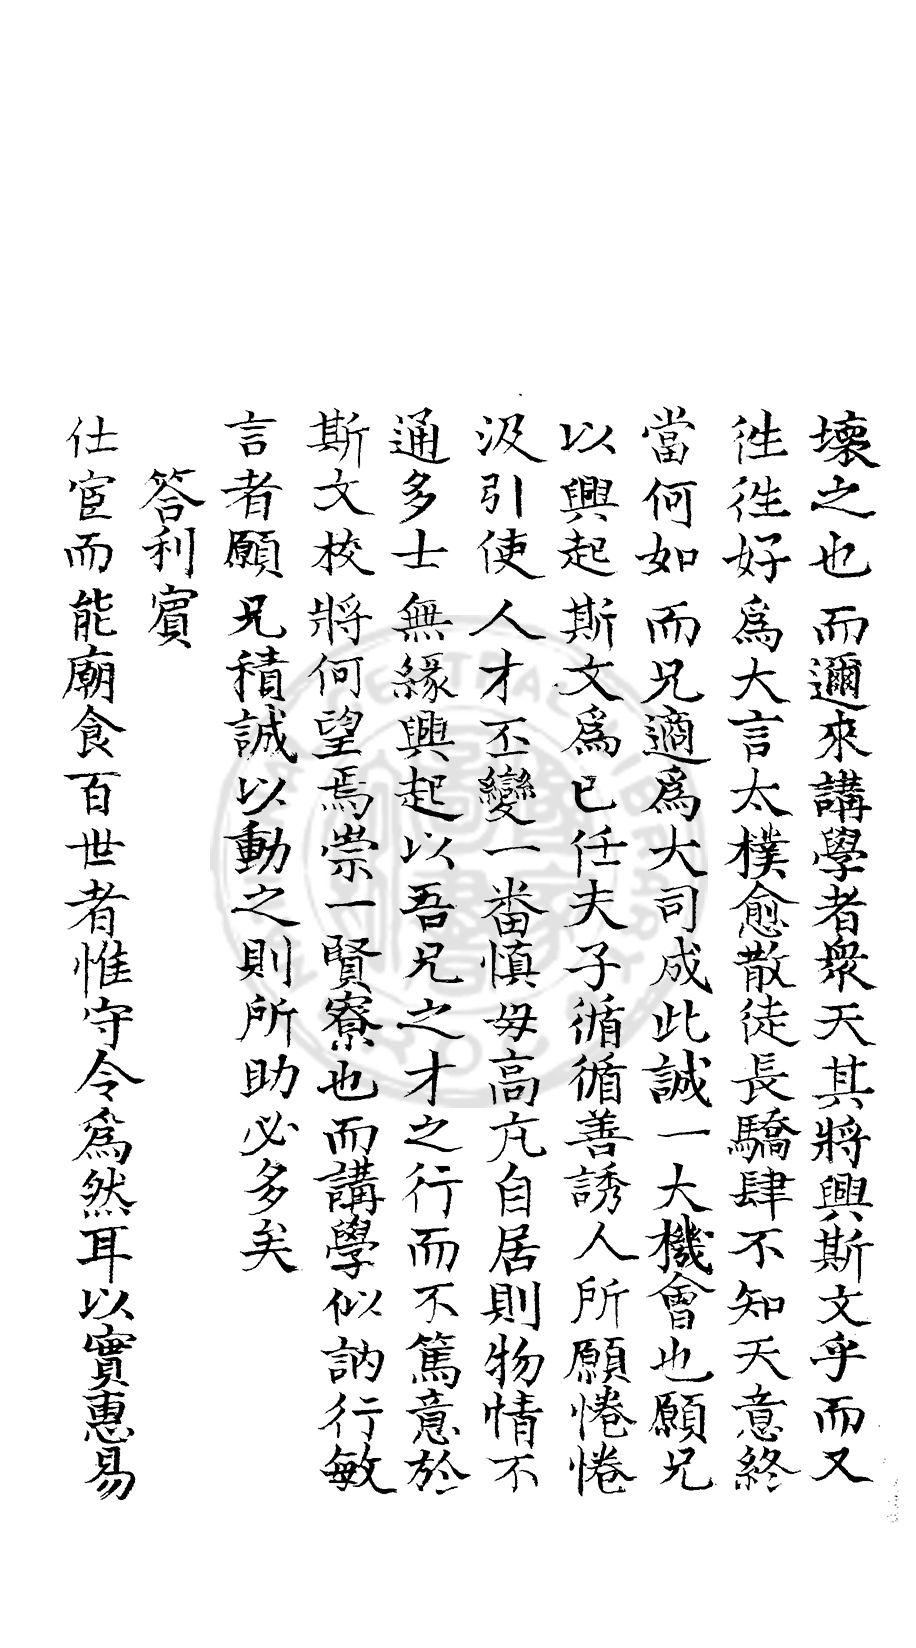 壞之也而邇來講學者衆天其將興斯文乎而又
徃徃好爲大言太樸愈散徒長驕肆不知天意終
當何如而兄適爲大司成此誠一大機會也願兄
以興起斯文爲已任夫子循循善誘人所願惓惓
汲引使人才丕變一畨慎毋高亢自居則物情不
通多士無緣興起以吾兄之才之行而不篤意於
斯文校將何望焉崇一賢寮也而講學似訥行敏
言者願兄積誠以動之則所助必多矣
答利賓
仕宦而能廟食百世者惟守令爲然耳以實惠易